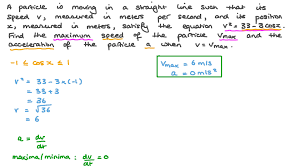 A particle is moving in a straight line such that its
speed v, measured in meters per second, and its position
x, measured in meters, satisfy the equation v² = 33 - 3cosx.
Find the maximum speed of the particle vmax and the
acceleration of the particle a when v = vmax.
-1 ≤ cosx ≤ 1
vmax = 6 m/s
a = 0 m/s²
v² = 33 - 3×(-1)
= 33 + 3
= 36
v = √36
= 6
a = dv/dt
maxima/minima : dv/dt = 0